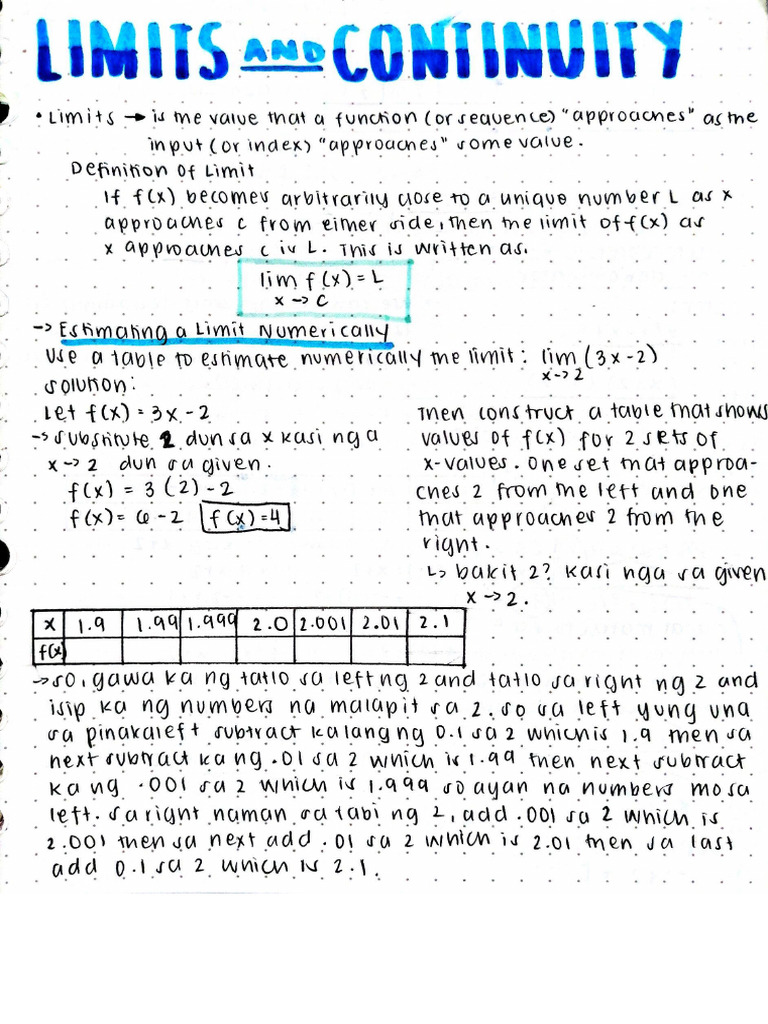 LIMITS AND CONTINUITY
• Limits → is the value that a function (or sequence) "approaches" as the
input (or index) "approaches" some value.
Definition of Limit
If f(x) becomes arbitrarily close to a unique number L as x
approaches c from either side, then the limit of f(x) as
x approaches c is L. This is written as.
lim f(x) = L
x → c
→ Estimating a Limit Numerically
Use a table to estimate numerically the limit: lim (3x - 2)
x → 2
solution:
Let f(x) = 3x - 2
→ substitute 2 dun sa x kasi nga
x → 2 dun sa given.
f(x) = 3(2) - 2
f(x) = 6 - 2 f(x) = 4
Then construct a table that shows
values of f(x) for 2 sets of
x-values. One set that approa-
ches 2 from the left and one
that approaches 2 from the
right.
↳ bakit 2? kasi nga sa given
x → 2.
x 1.9 1.99 1.999 2.0 2.001 2.01 2.1
f(x)
→ so, gawa ka ng tatlo sa left ng 2 and tatlo sa right ng 2 and
isip ka ng numbers na malapit sa 2. so sa left yung una
sa pinakaleft subtract ka lang ng 0.1 sa 2 which is 1.9 then sa
next subtract ka ng .01 sa 2 which is 1.99 then next subtract
ka ng .001 sa 2 which is 1.999 so ayan na numbers mo sa
left. sa right naman sa tabi ng 2, add .001 sa 2 which is
2.001 then sa next add .01 sa 2 which is 2.01 then sa last
add 0.1 sa 2 which is 2.1.